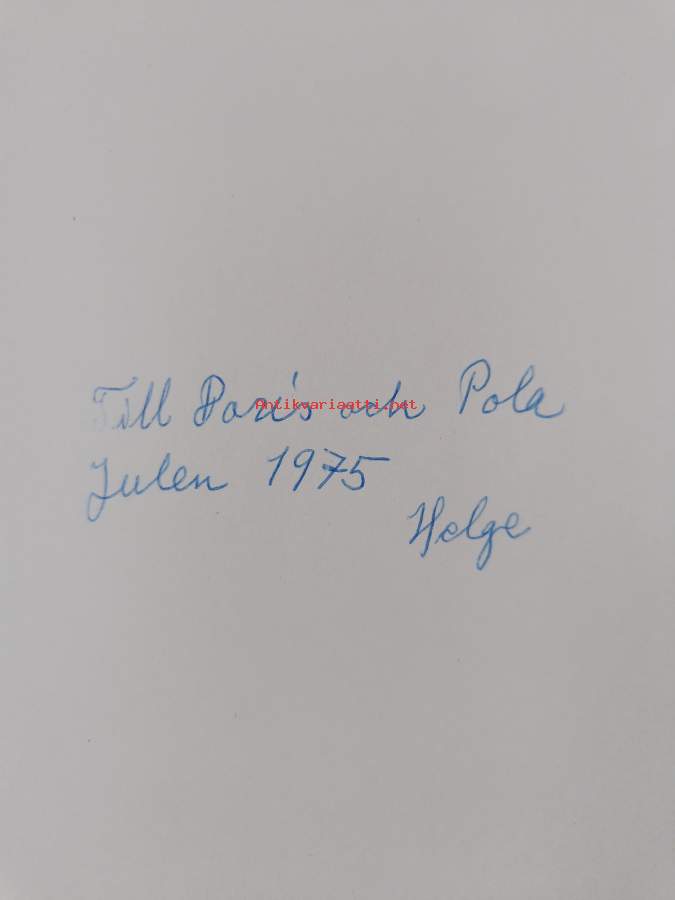 Till Doris och Pola
Antikvariaatti.net
Julen 1975
Helge